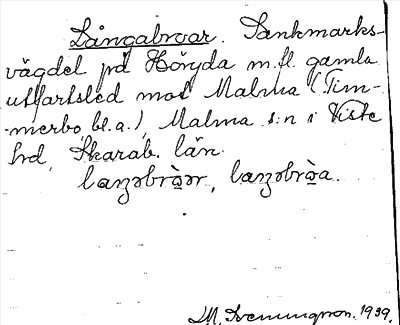 Långabroar. Sankmarks-
vägdel på Höryda m.fl. gamla
utfartsled mot Malma (Tim-
-merbo, bl.a.), Malma s:n i Viste
hd, Skarab. län.
laŋəbrὰər, laŋəbrὰa.
M. Svenungson. 1939.